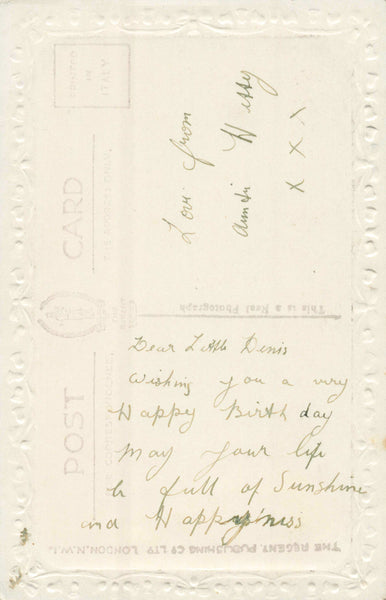 PRINTED
IN
ITALY
POST CARD
THE ADDRESS ONLY.
This is a Real Photograph
THE REGENT PUBLISHING CO LTD LONDON, N.W.1.
Love from
Aunti Hetty
X X X
Dear Little Denis
wishing you a very
Happy Birth day
May your life
be full of Sunshine
and Happyiness